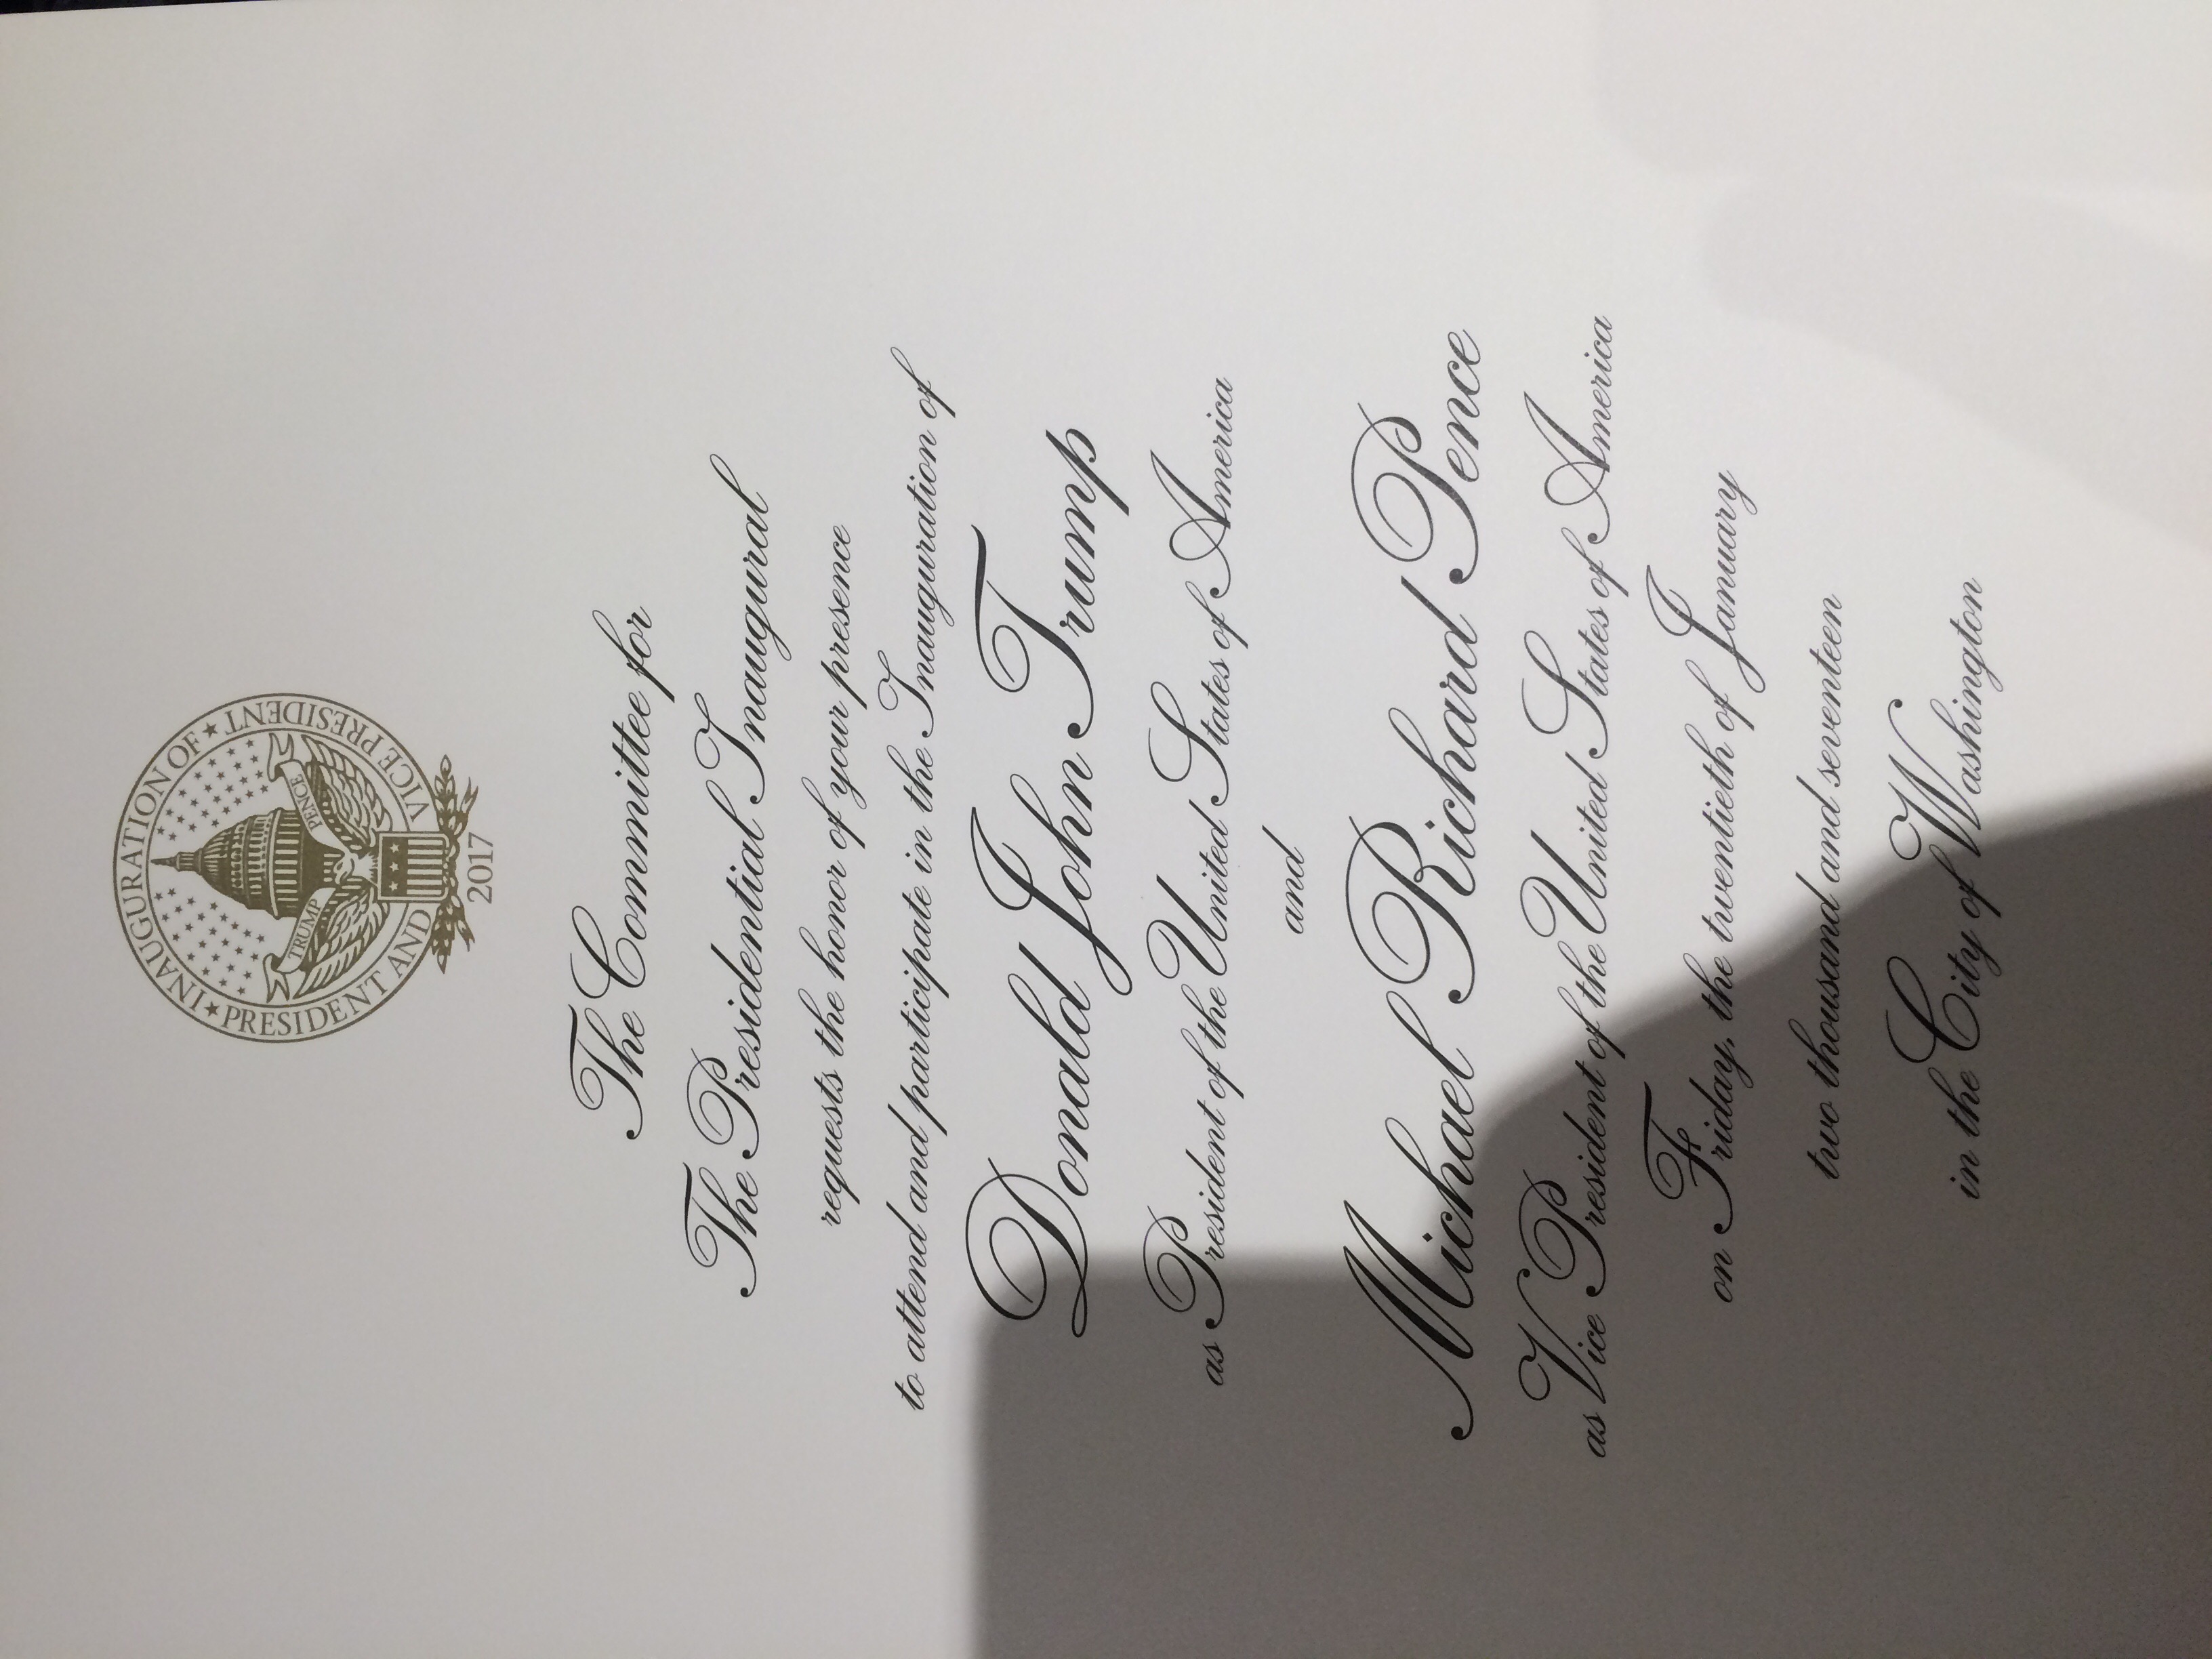 INAUGURATION OF
PRESIDENT AND VICE PRESIDENT
TRUMP
PENCE
2017
The Committee for
The Presidential Inaugural
requests the honor of your presence
to attend and participate in the Inauguration of
Donald John Trump
as President of the United States of America
and
Michael Richard Pence
as Vice President of the United States of America
on Friday, the twentieth of January
two thousand and seventeen
in the City of Washington